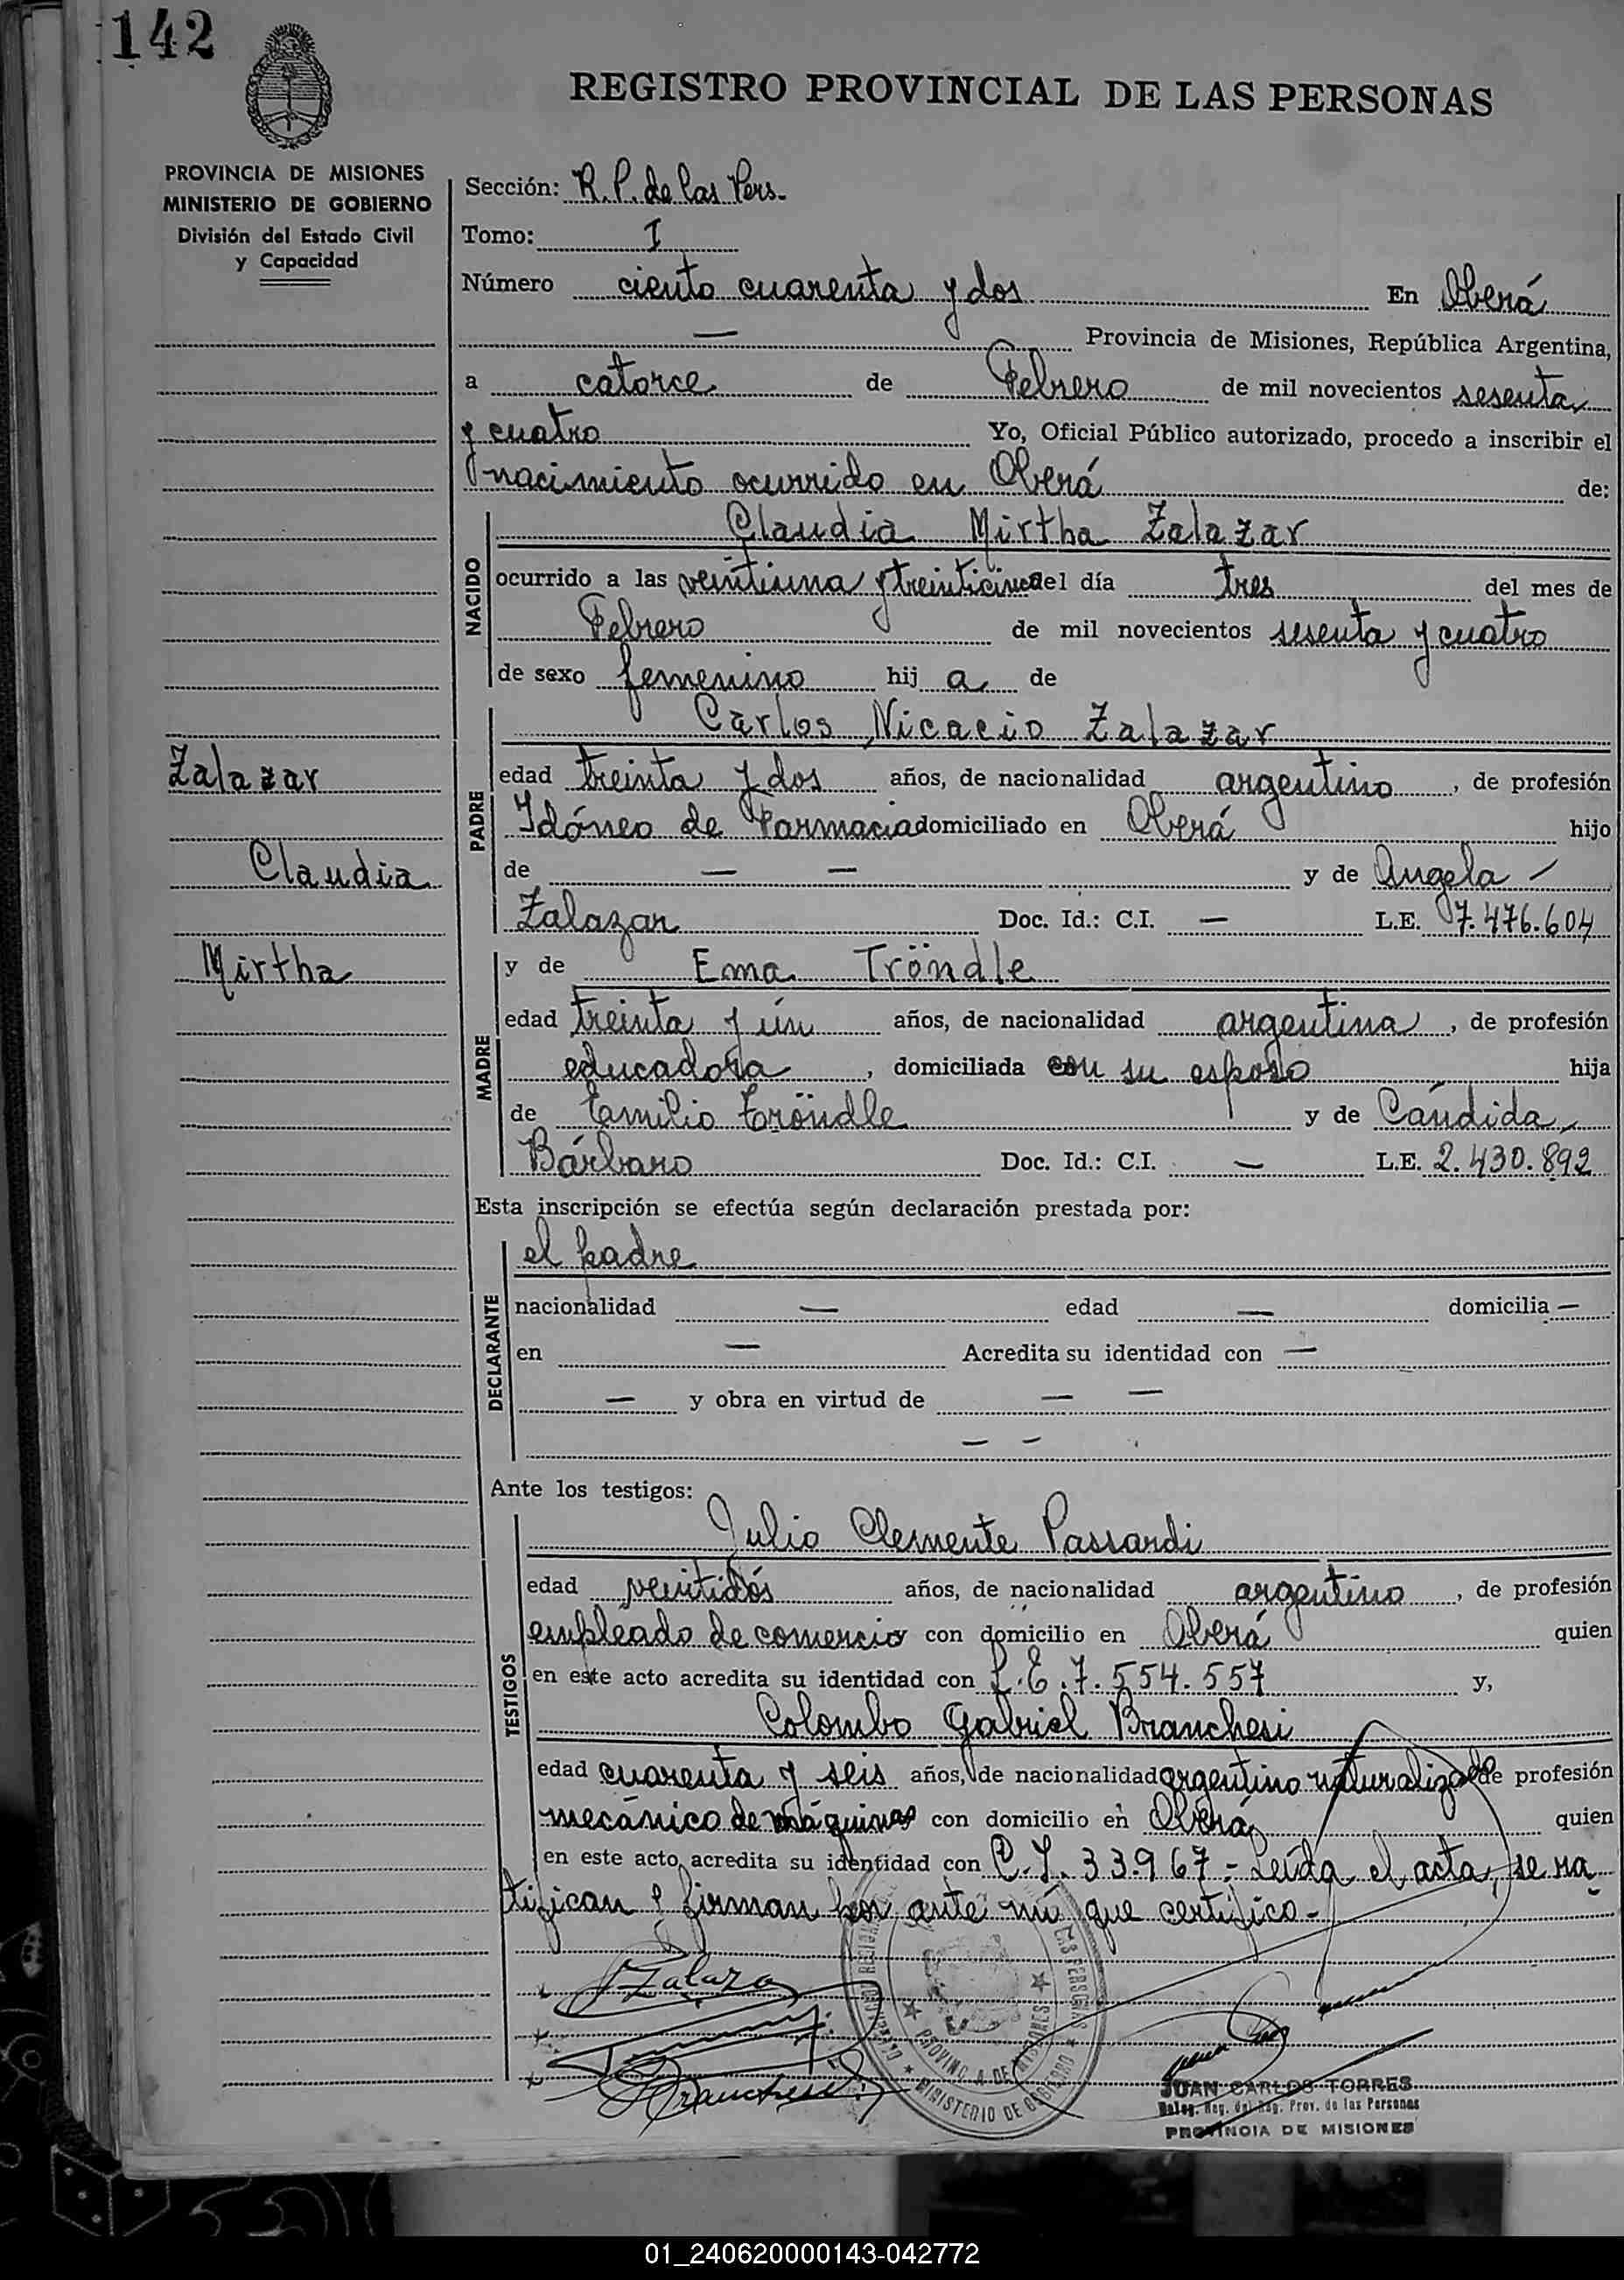 142
REGISTRO PROVINCIAL DE LAS PERSONAS
PROVINCIA DE MISIONES
MINISTERIO DE GOBIERNO
División del Estado Civil
y Capacidad
Sección: R. P. de las Pers.
Tomo: I
Número ciento cuarenta y dos En Oberá
— Provincia de Misiones, República Argentina,
a catorce de Febrero de mil novecientos sesenta
y cuatro Yo, Oficial Público autorizado, procedo a inscribir el
nacimiento ocurrido en Oberá de:
NACIDO
Claudia Mirtha Zalazar
ocurrido a las veintiuna y treinticinco del día tres del mes de
Febrero de mil novecientos sesenta y cuatro
de sexo femenino hij a de
PADRE
Carlos Nicacio Zalazar
Zalazar
Claudia
Mirtha
edad treinta y dos años, de nacionalidad argentino, de profesión
Idóneo de Farmacia domiciliado en Oberá hijo
de — — y de Angela —
Zalazar Doc. Id.: C.I. — L.E. 7.476.604
MADRE
y de Ema Tröndle
edad treinta y ún años, de nacionalidad argentina, de profesión
educadora, domiciliada con su esposo hija
de Emilio Tröndle y de Cándida
Bárbaro Doc. Id.: C.I. — L.E. 2.430.892
Esta inscripción se efectúa según declaración prestada por:
DECLARANTE
el padre
nacionalidad — edad — domicilia —
en — Acredita su identidad con —
— y obra en virtud de — —
— —
Ante los testigos:
TESTIGOS
Julio Clemente Passardi
edad veintidós años, de nacionalidad argentino, de profesión
empleado de comercio con domicilio en Oberá quien
en este acto acredita su identidad con L.E. 7.554.557 y,
Colombo Gabriel Branchesi
edad cuarenta y seis años, de nacionalidad argentino naturalizado de profesión
mecánico de máquinas con domicilio en Oberá quien
en este acto acredita su identidad con C.I. 33.967.- Leída el acta, se ra
tifican y firman por ante mí que certifico.-
Zalazar
Branchesi
PROVINCIA DE MISIONES
MINISTERIO DE GOBIERNO
JUAN CARLOS TORRES
Deleg. Reg. del Reg. Prov. de las Personas
PROVINCIA DE MISIONES
01_240620000143-042772